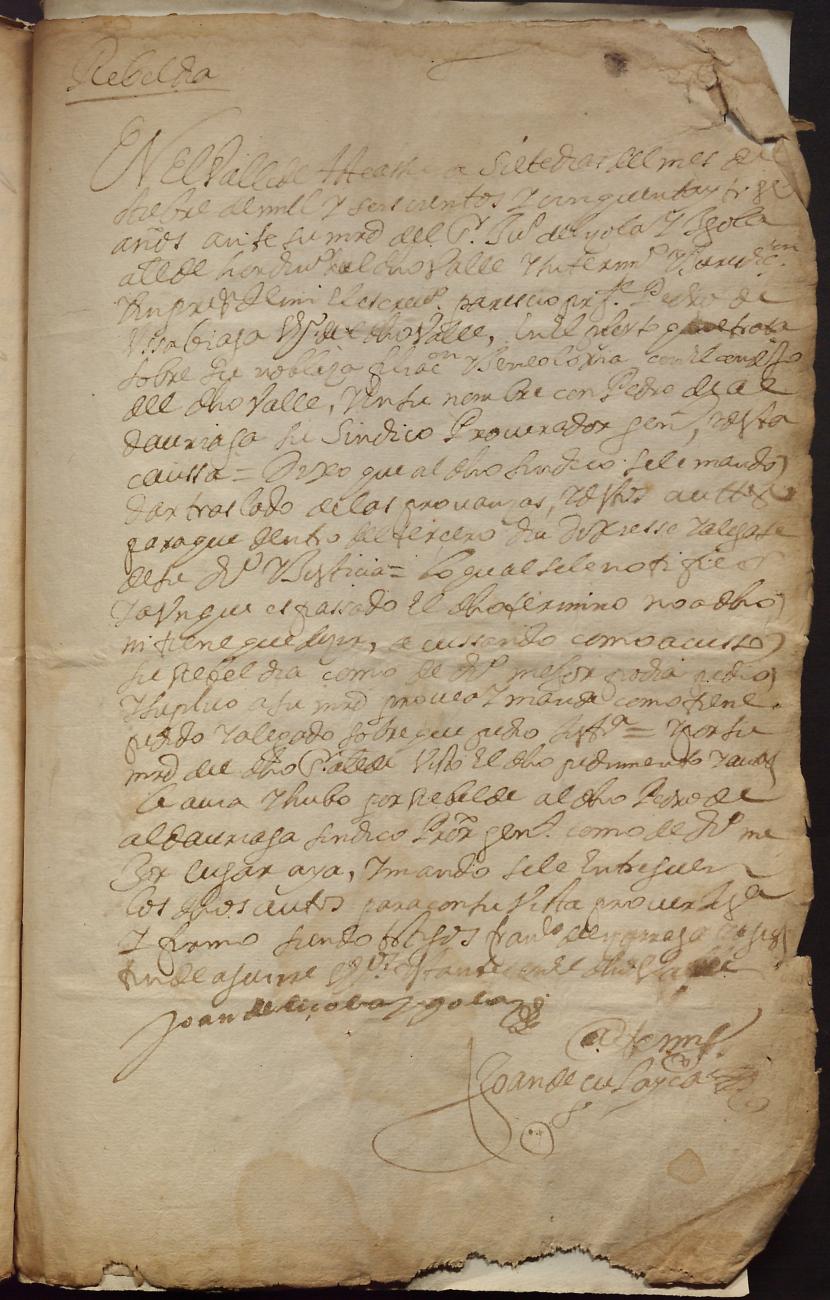 Rebeldia
En El Valle de a siete dias del mes de
tiebre de mill y seiscientos y cinquenta y tres
años ante su mrd del Sr. Ju° de y ygola
alcde hordin° del dho Valle y su term° y Juridicn
y en pres^a de mi El escriu° parescio pres^te Pedro de
V° del dho Valle, en El pleyto que trata
sobre su nobleza filiaçon y con El conçejo
del dho Valle, y en su nombre con Pedro de al
dauriaga su Sindico Procurador gen^l, y desta
caussa = Dixo que al dho sindico se le mando
dar traslado de las provanças, y destos auttos
para que dentro de terçero dia dixesse y alegase
de su dr° y Justicia = Lo qual se le notifico
y aunque es passado El dho termino no a dho
ni tiene que deçir, acussando como acusso
su Rebeldia como de dr° mejor podia pidio
y suplico a su mrd provea y mande como tiene
pedido y alegado sobre que pidio Just^a = y por su
mrd del dho Sr. alcde visto El dho pedimento y autos
la avia y hubo por Rebelde al dho Pedro de
aldauriaga sindico Pror gen^l. como de dr° me
Jor lugar aya, y mando se le Entreguen
los dhos autos para con su vista prover
y firmo siendo t^os fran^co de
tin de aguirre estantes en el dho Valle
Joan de ygola
Ante mi
Joan de